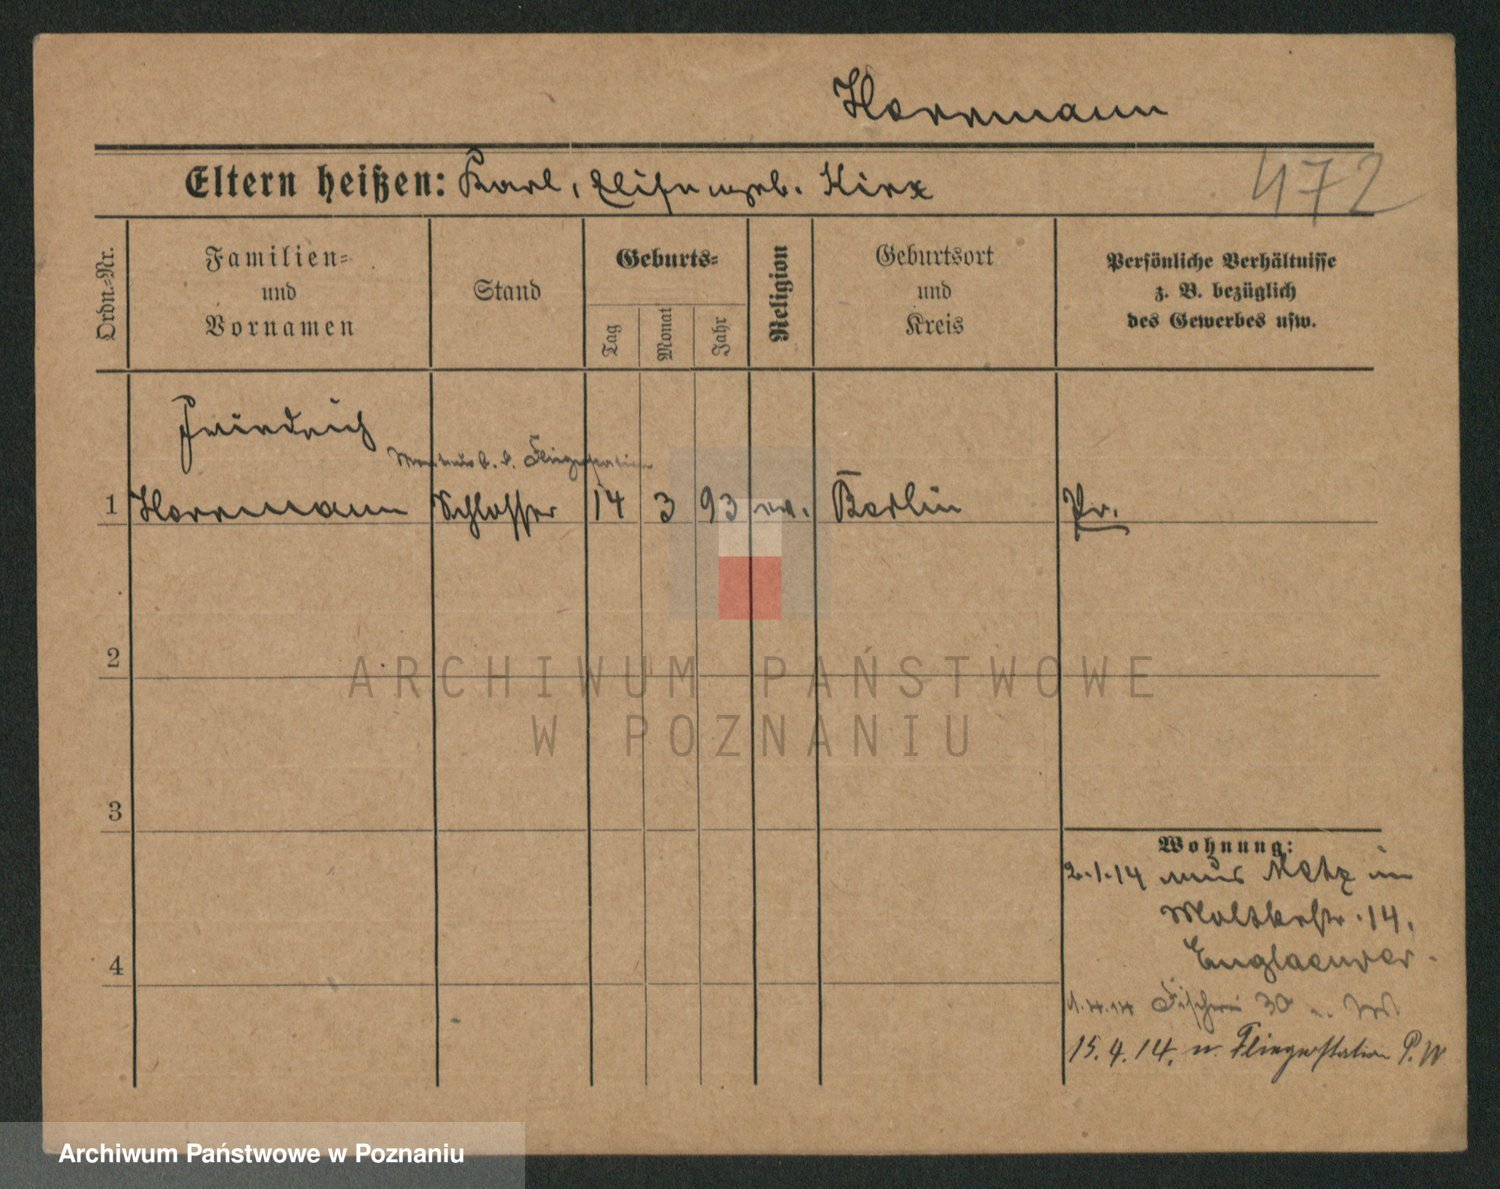 Herrmann
472
Eltern heißen: Karl, Elise geb. Kirx
Ordn.-Nr.
Familien-
und
Vornamen
Stand
Geburts-
Tag
Monat
Jahr
Religion
Geburtsort
und
Kreis
Persönliche Verhältnisse
z. B. bezüglich
des Gewerbes usw.
Friedrich
Monteur b. d. Fliegerstation
1 Herrmann Schlosser 14 3 93 ev. Berlin Pr.
2
ARCHIWUM PAŃSTWOWE
W POZNANIU
3
Wohnung:
2.1.14 aus Metz in
Moltkestr. 14.
4
1.4.14 Fischerei 30
15.4.14. n. Fliegerstation P. W
Archiwum Państwowe w Poznaniu